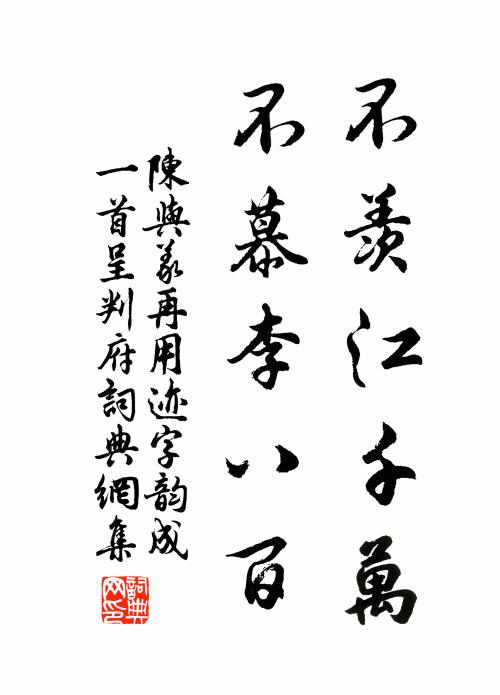 不羨江千萬
不慕李八百
陳與義再用迹字韵成
一首呈判府詞典網集
詞典
网印